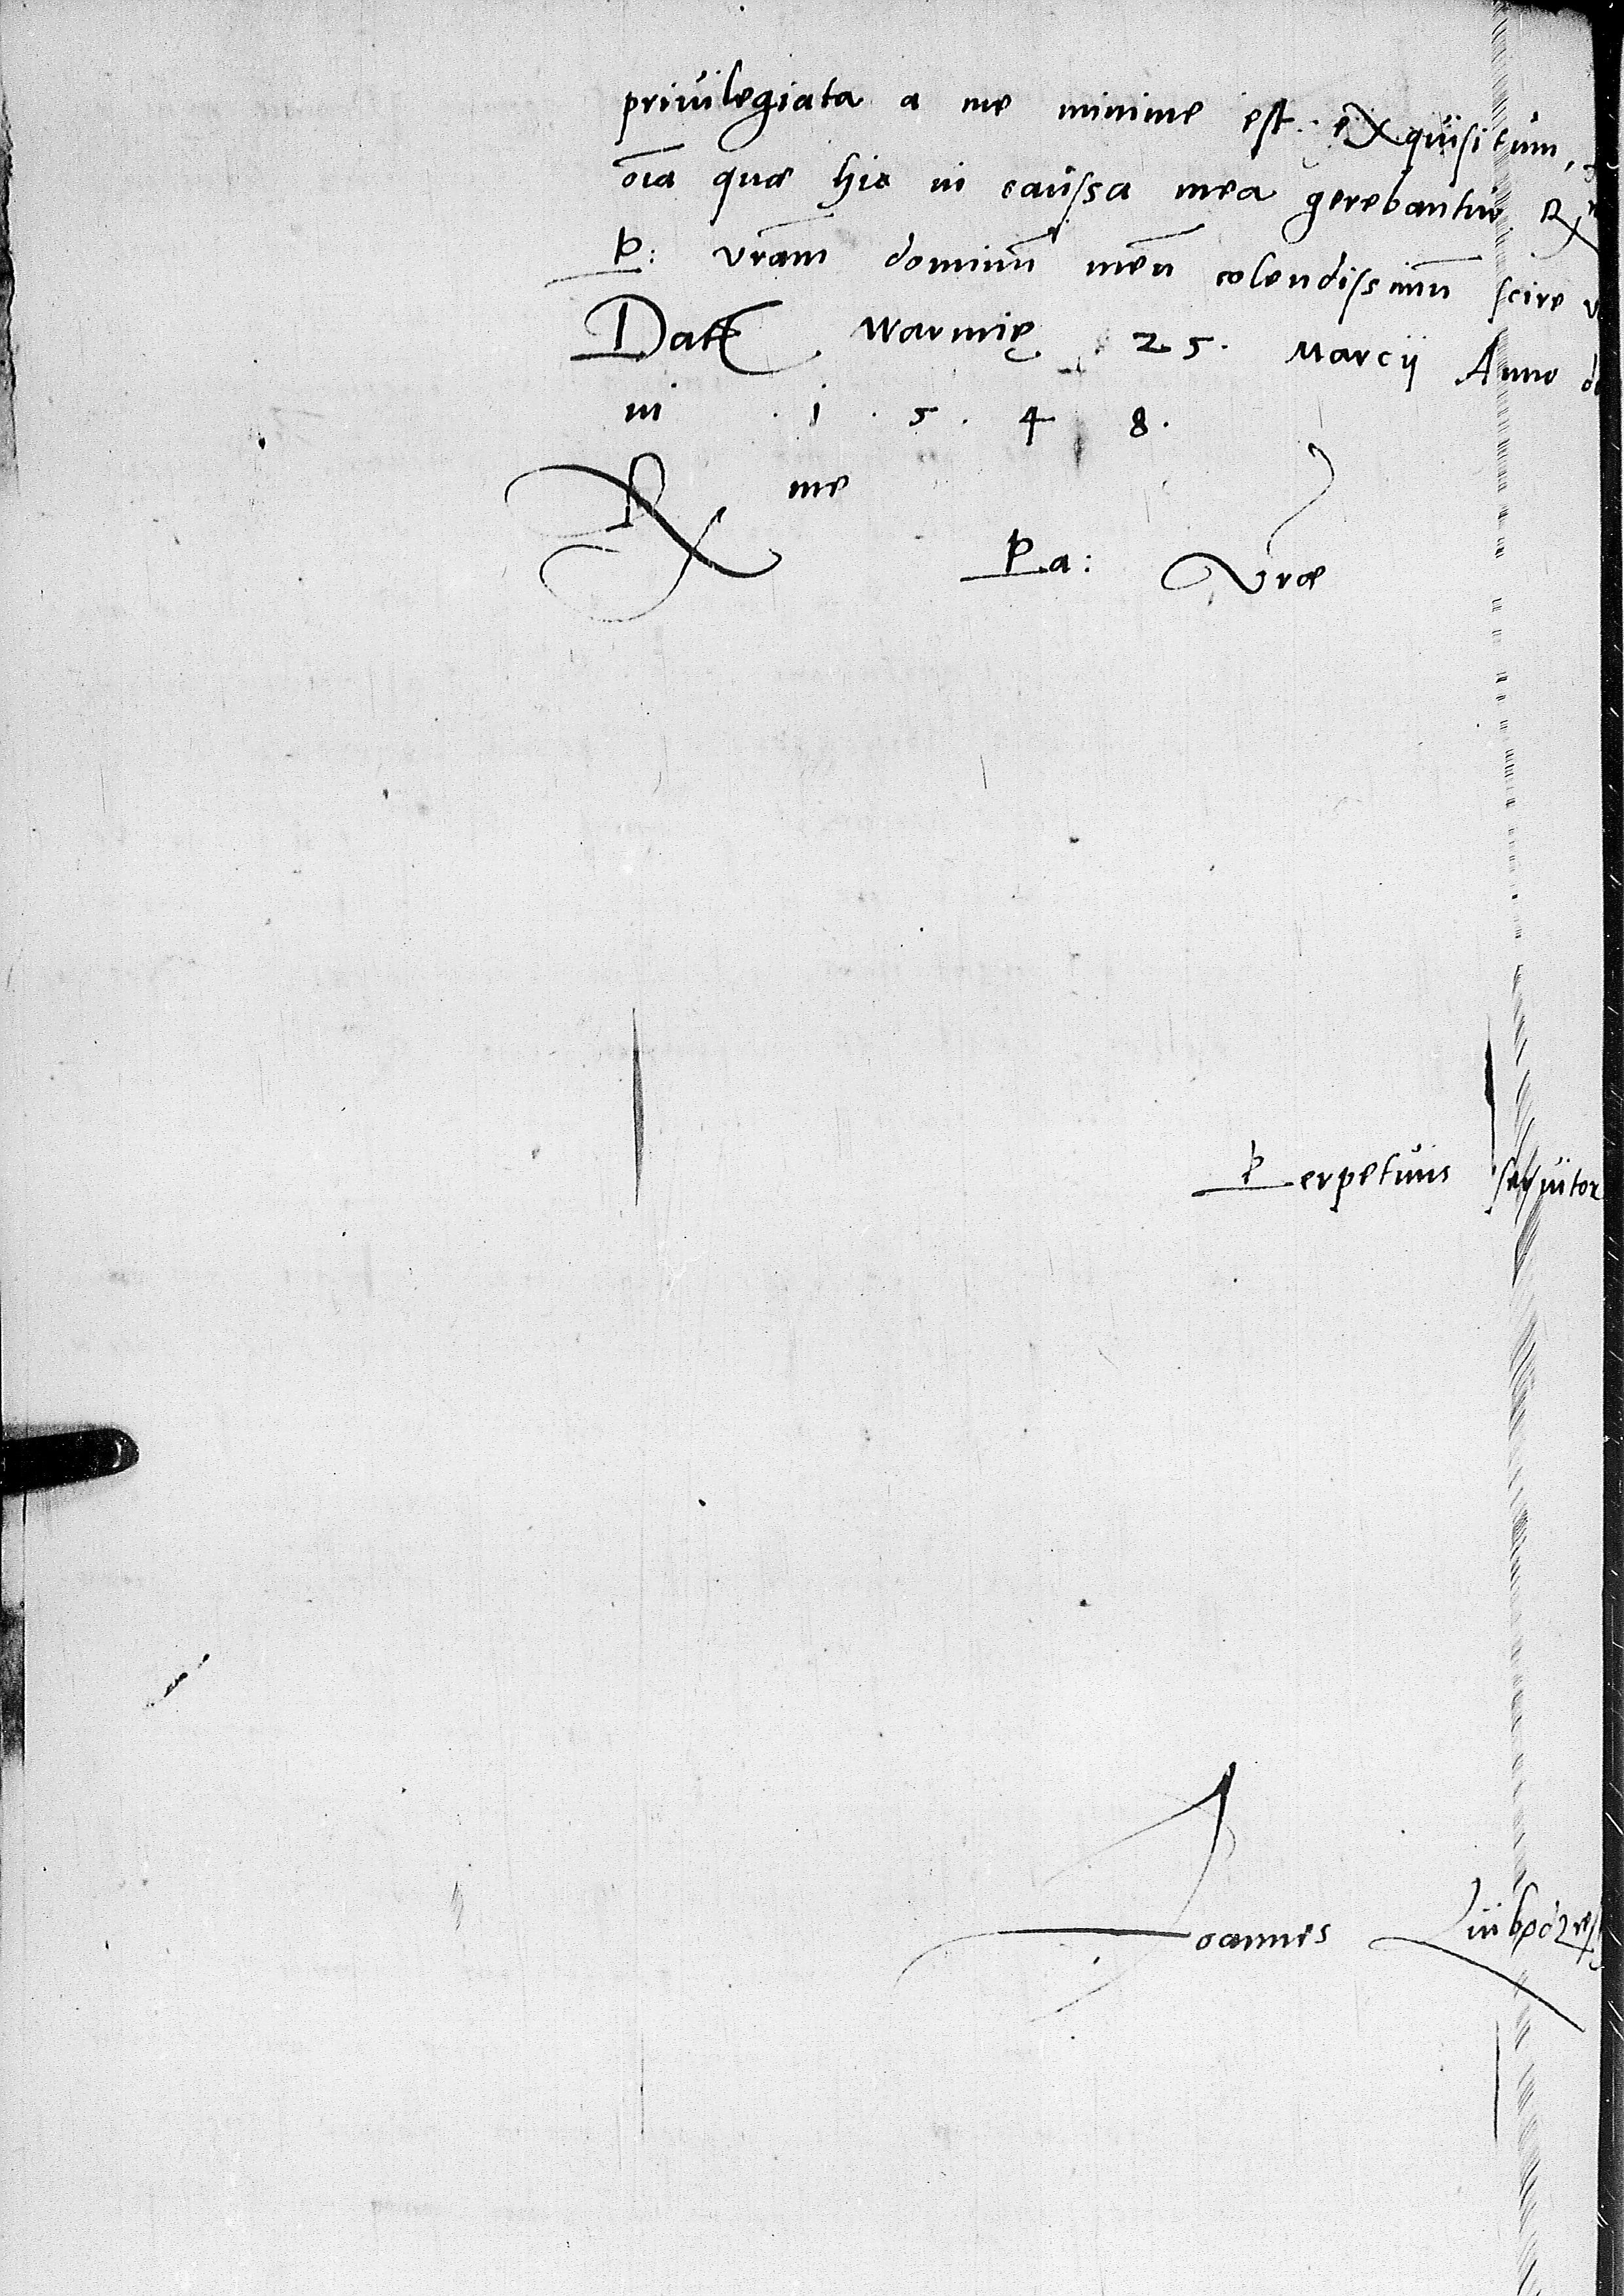 privilegiata a me minime est exquisitum,
oı̄a quæ hic in caussa mea gerebantur R
P: vrām dominū meū colendissimū scire
Datæ Warmię 25. Marcij Anno
ni . 1 . 5 . 4 8 .
R me
Pa: Vræ
Perpetuus servitor
Joannes